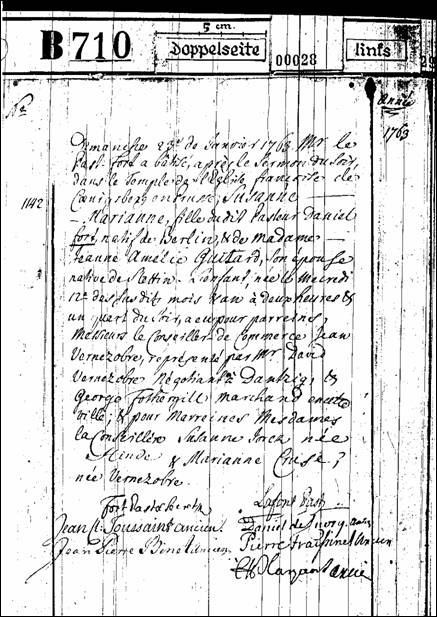 5 cm.
B 710
Doppelseite
00028
links
29
No
Année
1763
Dimanche 23e de Janvier 1763 Mr le
Past. Fort a batisé, après le Sermon du Soir,
dans le Temple de l'Eglise françoise de
Coenigsberg en Prusse, Susanne
1142
Marianne, fille dudit Pasteur Daniel
fort, natif de Berlin, & de Madame
Jeanne Amélie Guitard, son épouse
native de Stettin. L'enfant, née le Mecredi
12e des susdit mois & an à deux heures &
un quart du Soir, a eu pour parreins,
Messieurs le Conseiller de Commerce Jean
Vernezobre, représenté par Mr David
Vernezobre Négotiant à Dantzig, &
George Fothergill marchand en cette
ville; & pour Marreines Mesdames
la Conseillère Susanne née
& Marianne
née Vernezobre.
Fort Past.
Lafont Past.
Jean Toussaint ancien.
Daniel de
Jean Pierre Benet Ancien.
Pierre Fraissinet Ancien